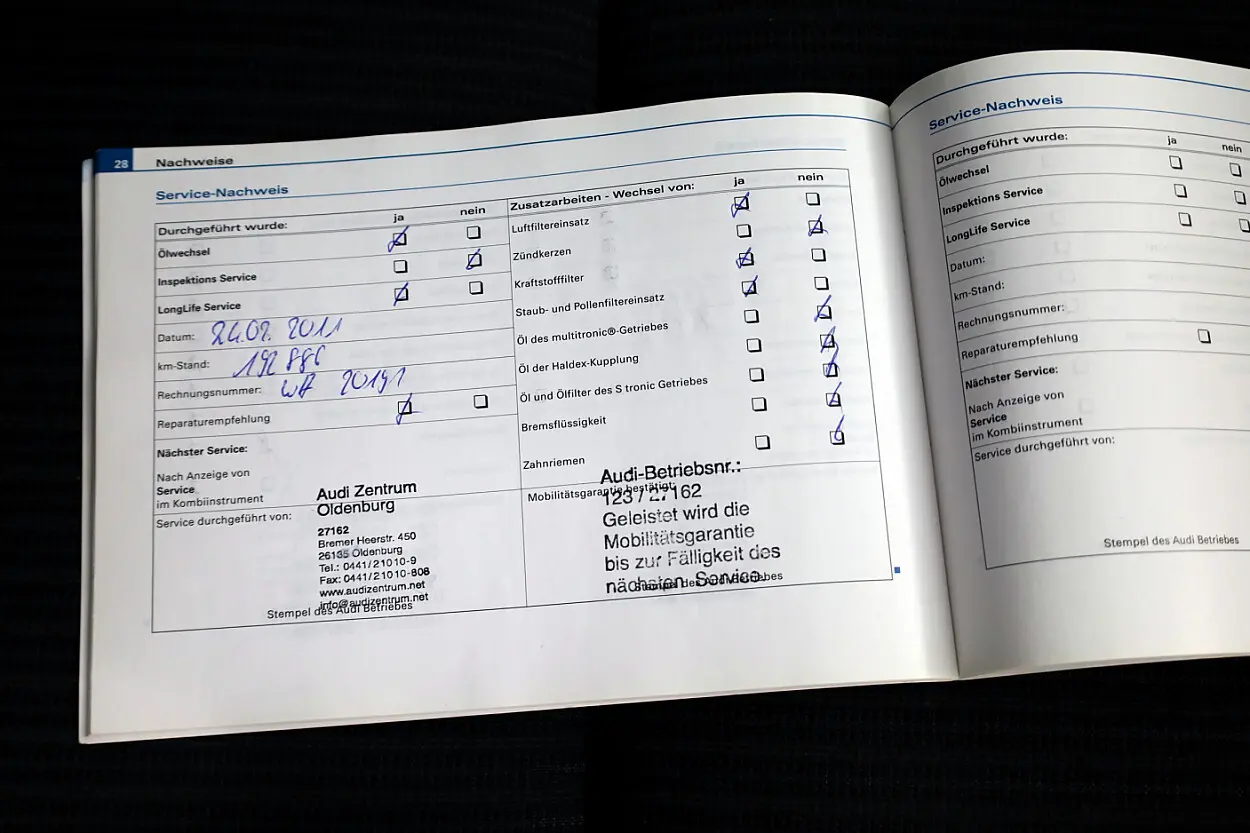 28 Nachweise
Service-Nachweis
Durchgeführt wurde: ja nein
Ölwechsel
Inspektions Service
LongLife Service
Datum: 24.02. 2011
km-Stand: 192 886
Rechnungsnummer: 20191
Reparaturempfehlung
Nächster Service:
Nach Anzeige von
Service
im Kombiinstrument
Service durchgeführt von:
Audi Zentrum
Oldenburg
27162
Bremer Heerstr. 450
26135 Oldenburg
Tel.: 0441/21010-9
Fax: 0441/21010-808
www.audizentrum.net
info@audizentrum.net
Stempel des Audi Betriebes
Zusatzarbeiten - Wechsel von: ja nein
Luftfiltereinsatz
Zündkerzen
Kraftstofffilter
Staub- und Pollenfiltereinsatz
Öl des multitronic®-Getriebes
Öl der Haldex-Kupplung
Öl und Ölfilter des S tronic Getriebes
Bremsflüssigkeit
Zahnriemen
Audi-Betriebsnr.:
Mobilitätsgarantie bestätigt:
123 / 27162
Geleistet wird die
Mobilitätsgarantie
bis zur Fälligkeit des
nächsten Service.
Stempel des Audi Betriebes
Service-Nachweis
Durchgeführt wurde: ja nein
Ölwechsel
Inspektions Service
LongLife Service
Datum:
km-Stand:
Rechnungsnummer:
Reparaturempfehlung
Nächster Service:
Nach Anzeige von
Service
im Kombiinstrument
Service durchgeführt von:
Stempel des Audi Betriebes